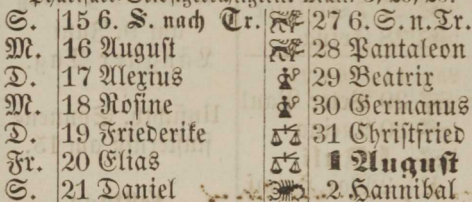 S. 15 6. S. nach Tr. 27 6. S. n. Tr.
M. 16 August 28 Pantaleon
D. 17 Alexius 29 Beatrix
M. 18 Rosine 30 Germanus
D. 19 Friederike 31 Christfried
Fr. 20 Elias 1 August
S. 21 Daniel 2 Hannibal